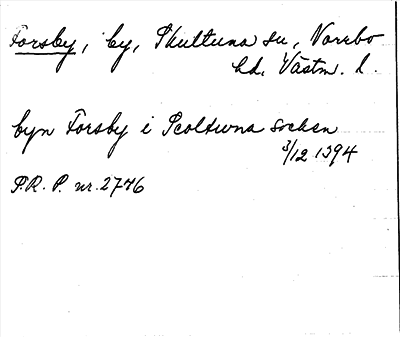 Forsby, by, Skultuna sn, Norrbo
hd, Västm. l.
byn Forsby i Scoltuna socken
3/12 1394
P.R. P. nr. 2746